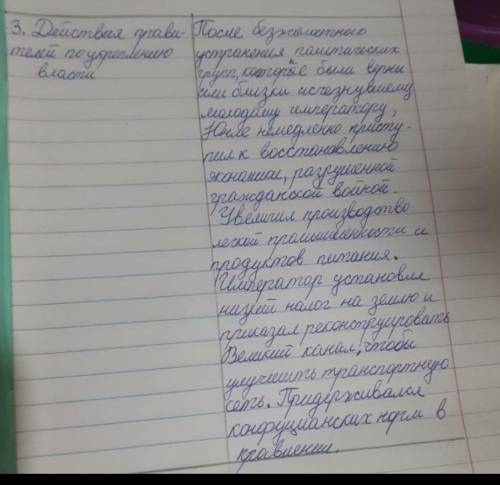 3. Действия прави-
телей по укреплению
власти
После безжалостного
устранения политических
групп, которые были верны
или близки исчезнувшему
молодому императору,
Юнле немедленно присту-
пил к восстановлению
экономики, разрушенной
гражданской войной.
Увеличил производство
легкой промышленности и
продуктов питания.
Император установил
низкий налог на землю и
приказал реконструировать
Великий канал, чтобы
улучшить транспортную
сеть. Придерживался
конфуцианских норм в
правлении.